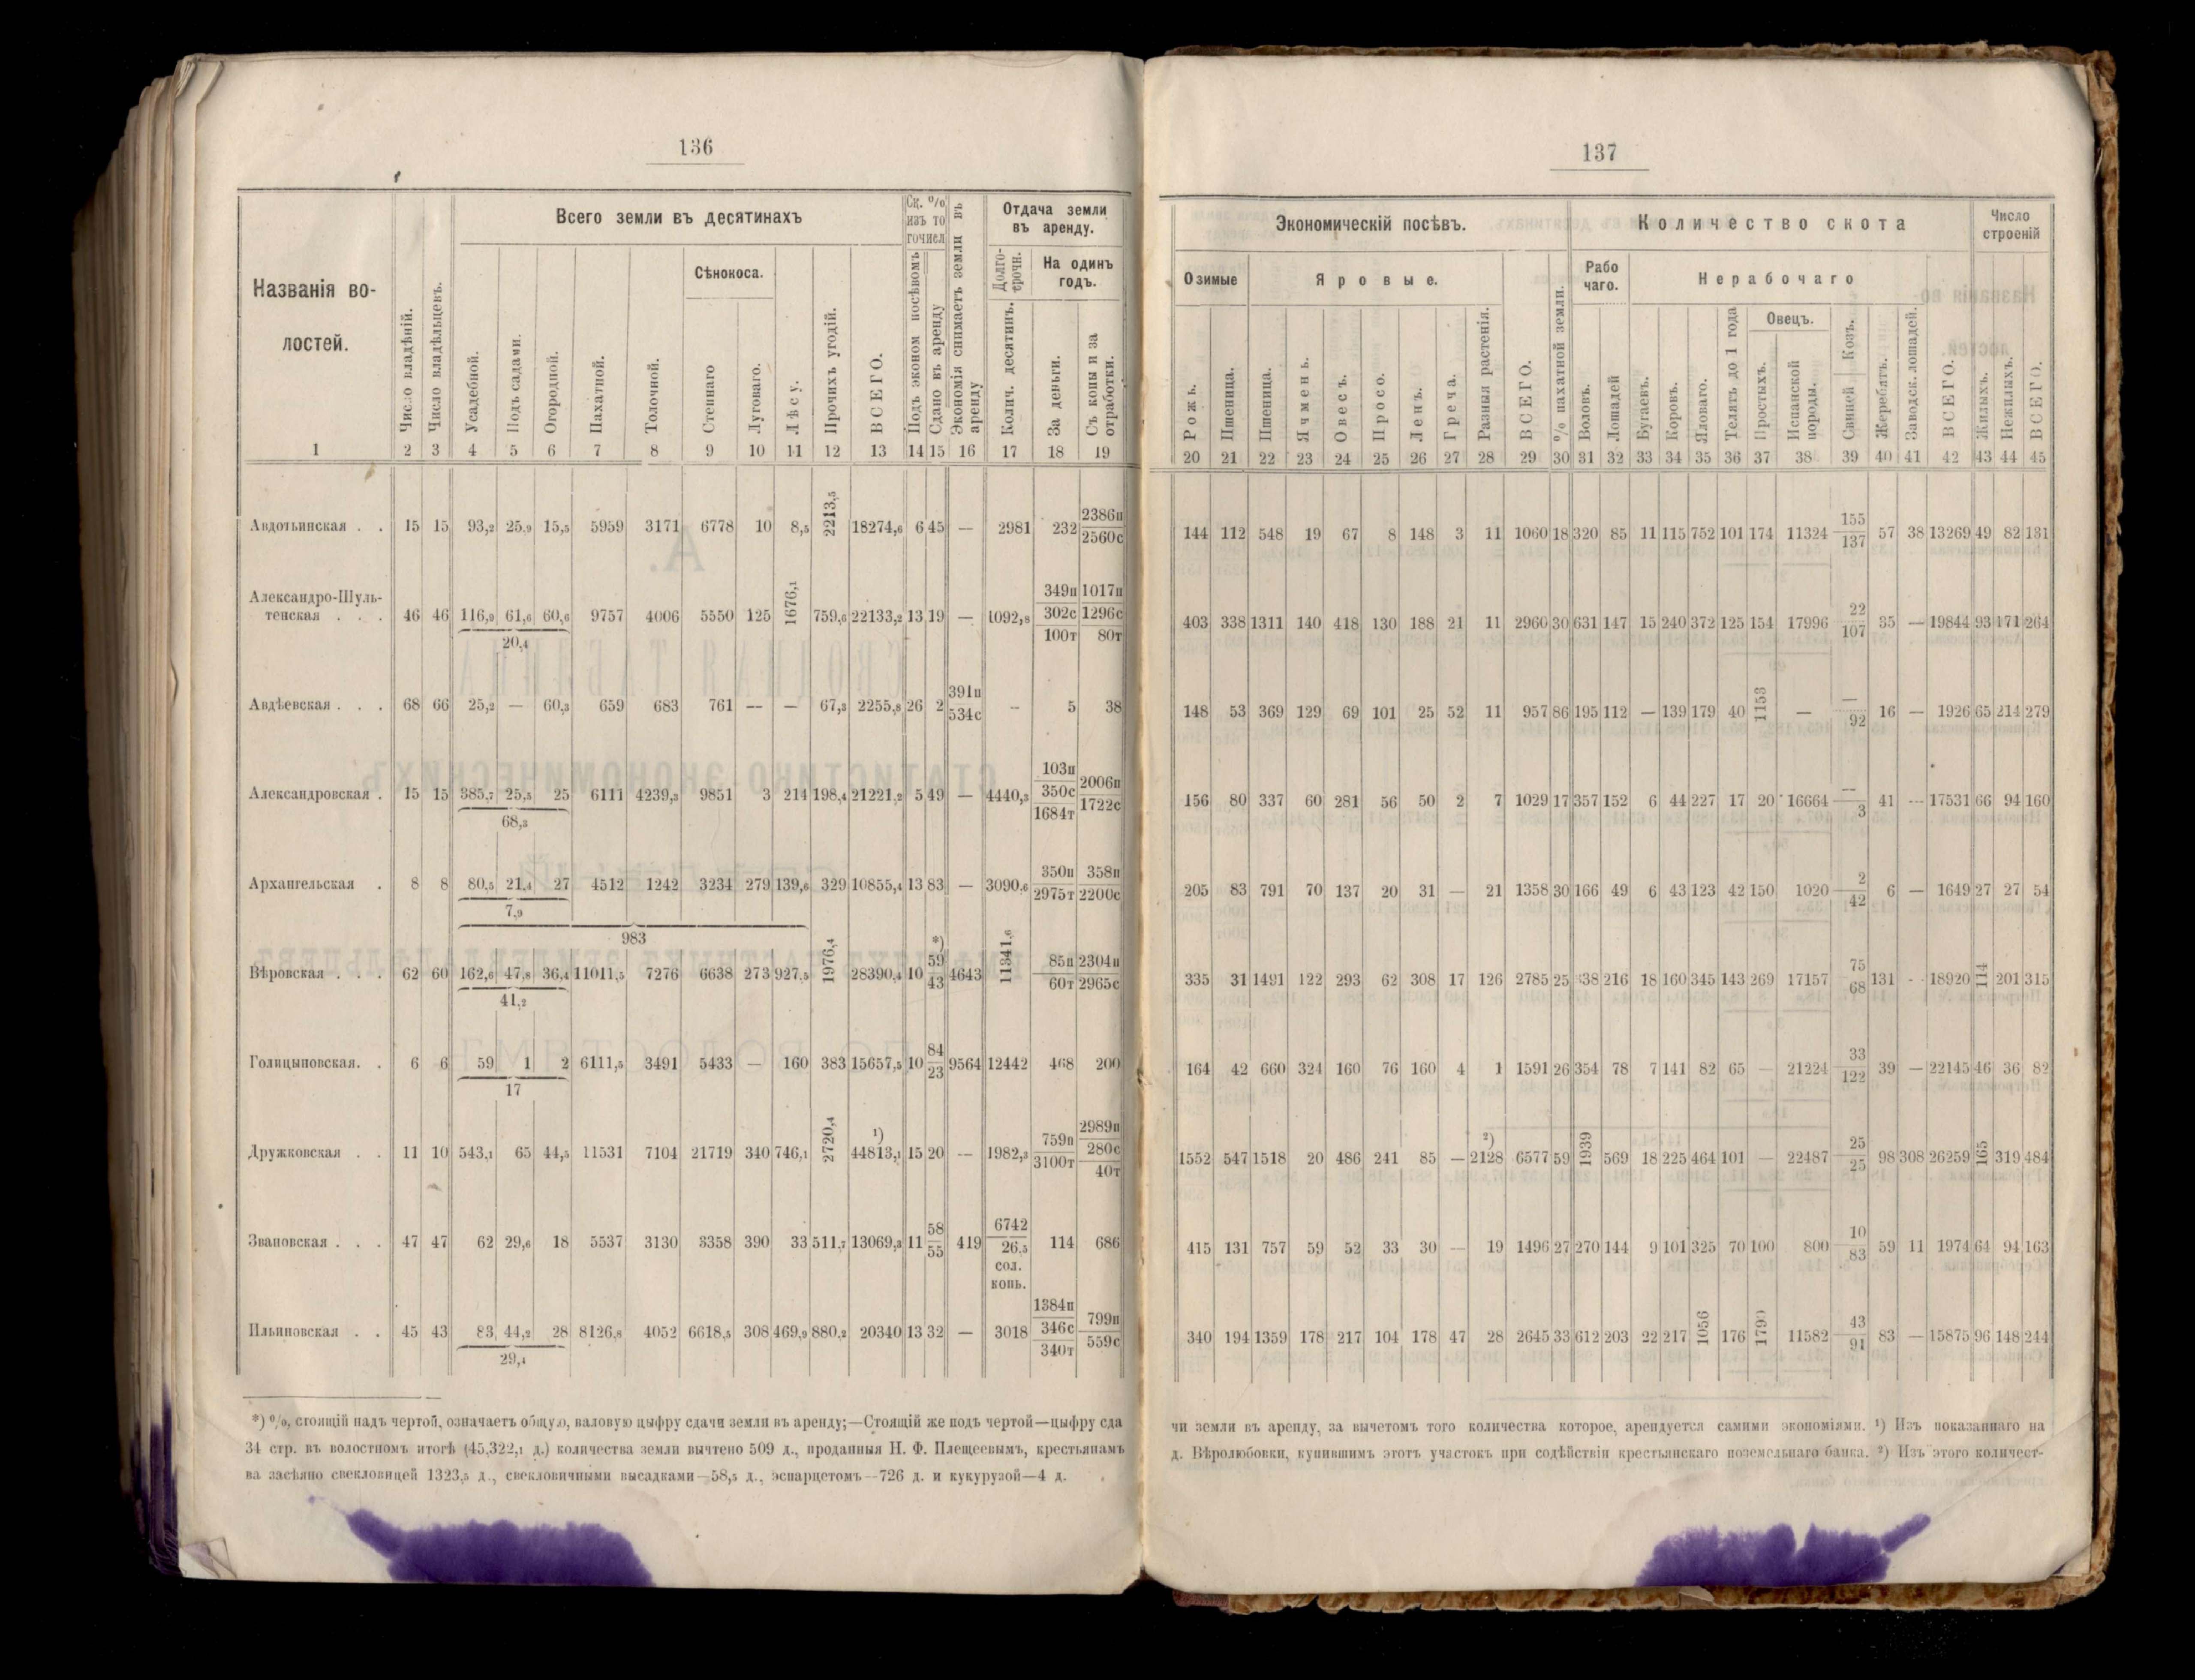 136
Названія во-
лостей.
Число владѣній.
Число владѣльцевъ.
Всего земли въ десятинахъ
Усадебной.
Подъ садами.
Огородной.
Пахатной.
Толочной.
Сѣнокоса.
Степнаго
Луговаго.
Лѣсу.
Прочихъ угодій.
ВСЕГО.
Ск. %
изъ то
гочисл
Подъ эконом посѣвомъ
Сдано въ аренду
Экономія снимаетъ земли въ аренду
Отдача земли
въ аренду.
Долго-
срочн.
Колич. десятинъ.
На одинъ
годъ.
За деньги.
Съ копы и за
отработки.
1 2 3 4 5 6 7 8 9 10 11 12 13 14 15 16 17 18 19
Авдотьинская . . 15 15 93,2 25,9 15,5 5959 3171 6778 10 8,5 2213,5 18274,6 6 45 — 2981 232 2386п 2560с
Александро-Шуль-
тенская . . . 46 46 116,9 61,6 60,6 9757 4006 5550 125 1676,1 759,6 22133,2 13 19 — 1092,8 349п 302с 100т 1017п 1296с 80т
20,4
Авдѣевская . . . 68 66 25,2 — 60,3 659 683 761 — — 67,3 2255,8 26 2 391п 534с – 5 38
Александровская . 15 15 385,7 25,5 25 6111 4239,3 9851 3 214 198,4 21221,2 5 49 — 4440,3 103п 350с 1684т 2006п 1722с
68,3
Архангельская . 8 8 80,5 21,4 27 4512 1242 3234 279 139,6 329 10855,4 13 83 — 3090,6 350п 2975т 358п 2200с
7,9
983
Вѣровская . . . 62 60 162,6 47,8 36,4 11011,5 7276 6638 273 927,5 1976,4 28390,4 10 *) 59 43 4643 11341,6 85п 60т 2304п 2965с
41,2
Голицыновская. . 6 6 59 1 2 6111,5 3491 5433 — 160 383 15657,5 10 84 23 9564 12442 468 200
17
Дружковская . . 11 10 543,1 65 44,5 11531 7104 21719 340 746,1 2720,4 ¹) 44813,1 15 20 — 1982,3 759п 3100т 2989п 280с 40т
Звановская . . . 47 47 62 29,6 18 5537 3130 3358 390 33 511,7 13069,3 11 58 55 419 6742 26,5 сол. копь. 114 686
Ильиновская . . 45 43 83 44,2 28 8126,8 4052 6618,5 308 469,9 880,2 20340 13 32 — 3018 1384п 346с 340т 799п 559с
29,4
*) %, стоящій надъ чертой, означаетъ общую, валовую цыфру сдачи земли въ аренду;—Стоящій же подъ чертой—цыфру сда
34 стр. въ волостномъ итогѣ (45,322,1 д.) количества земли вычтено 509 д., проданныя Н. Ф. Плещеевымъ, крестьянамъ
ва засѣяно свекловицей 1323,5 д., свекловичными высадками—58,5 д., эспарцетомъ—726 д. и кукурузой—4 д.
137
Экономическій посѣвъ.
Озимые
Рожь.
Пшеница.
Яровые.
Пшеница.
Ячмень.
Овесъ.
Просо.
Ленъ.
Греча.
Разныя растенія.
ВСЕГО.
% пахатной земли.
Количество скота
Рабо
чаго.
Воловъ.
Лошадей
Нерабочаго
Бугаевъ.
Коровъ.
Яловаго.
Телятъ до 1 года
Овецъ.
Простыхъ.
Испанской
породы.
Свиней Козъ.
Жеребятъ.
Заводск. лошадей.
ВСЕГО.
Число
строеній
Жилыхъ.
Нежилыхъ.
ВСЕГО.
20 21 22 23 24 25 26 27 28 29 30 31 32 33 34 35 36 37 38 39 40 41 42 43 44 45
144 112 548 19 67 8 148 3 11 1060 18 320 85 11 115 752 101 174 11324 155 137 57 38 13269 49 82 131
403 338 1311 140 418 130 188 21 11 2960 30 631 147 15 240 372 125 154 17996 22 107 35 — 19844 93 171 264
148 53 369 129 69 101 25 52 11 957 86 195 112 — 139 179 40 1153 — — 92 16 — 1926 65 214 279
156 80 337 60 281 56 50 2 7 1029 17 357 152 6 44 227 17 20 16664 — 3 41 — 17531 66 94 160
205 83 791 70 137 20 31 — 21 1358 30 166 49 6 43 123 42 150 1020 2 42 6 — 1649 27 27 54
335 31 1491 122 293 62 308 17 126 2785 25 38 216 18 160 345 143 269 17157 75 68 131 - - 18920 114 201 315
164 42 660 324 160 76 160 4 1 1591 26 354 78 7 141 82 65 — 21224 33 122 39 — 22145 46 36 82
1552 547 1518 20 486 241 85 — ²) 2128 6577 59 1939 569 18 225 464 101 — 22487 25 25 98 308 26259 165 319 484
415 131 757 59 52 33 30 — 19 1496 27 270 144 9 101 325 70 100 800 10 83 59 11 1974 64 94 163
340 194 1359 178 217 104 178 47 28 2645 33 612 203 22 217 1056 176 1790 11582 43 91 83 — 15875 96 148 244
чи земли въ аренду, за вычетомъ того количества которое, арендуется самими экономіями. ¹) Изъ показаннаго на
д. Вѣролюбовки, купившимъ этотъ участокъ при содѣйствіи крестьянскаго поземельнаго банка. ²) Изъ этого количест-